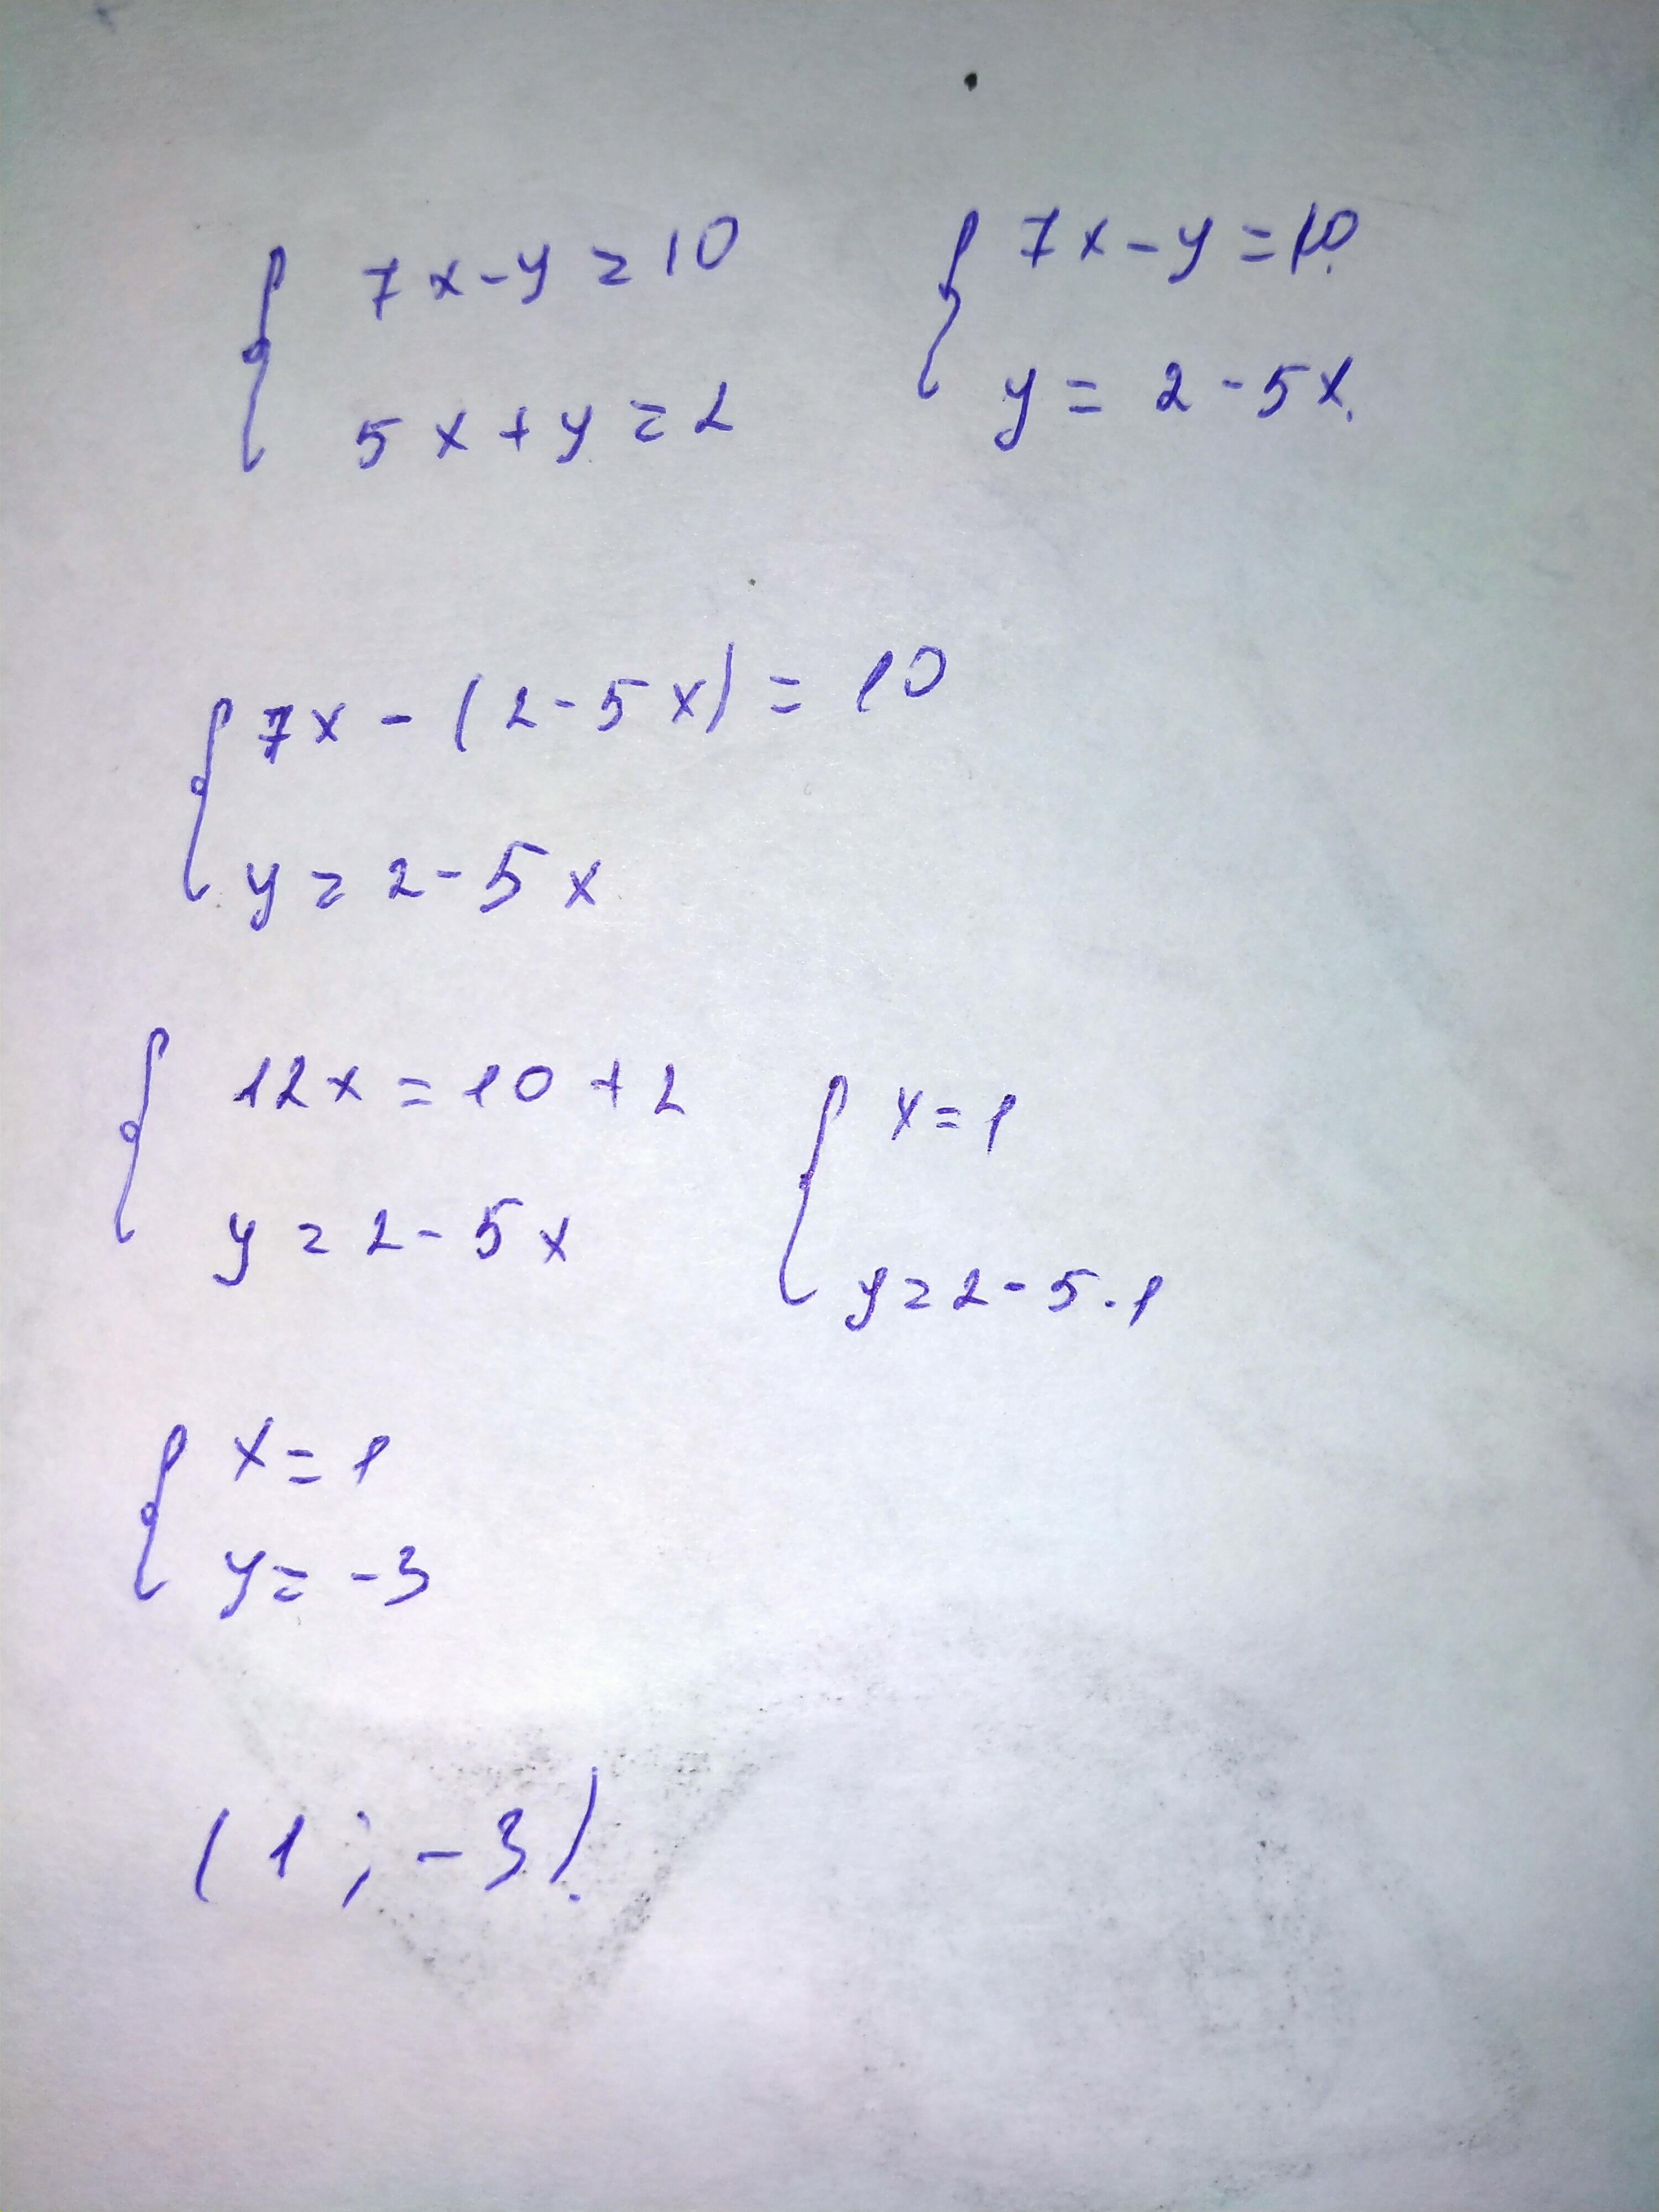 { 7x-y=10 { 7x-y=10
5x+y=2 y=2-5x
{ 7x-(2-5x)=10
y=2-5x
{ 12x=10+2 { x=1
y=2-5x y=2-5·1
{ x=1
y=-3
(1;-3).